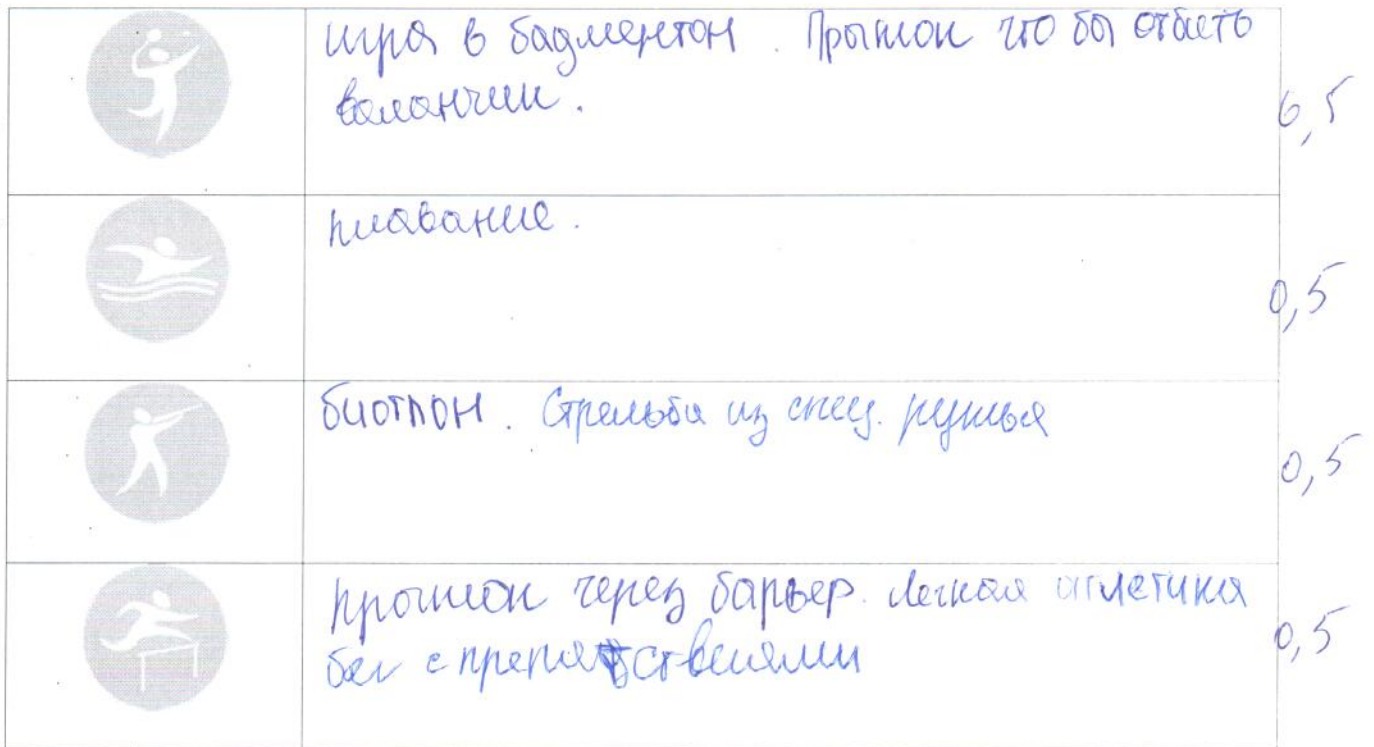 игра в бадментон. Прыжок что бы отбить
воланчик.
0,5
плавание.
0,5
биотлон. Стрельба из спец. ружья
0,5
прыжок через барьер. легкая атлетика
бег с препятствиями
0,5